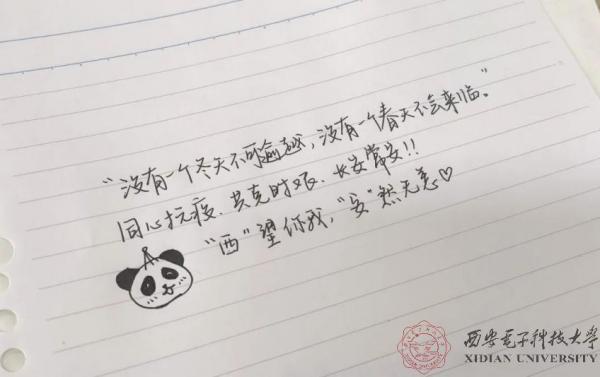 “没有一个冬天不可逾越,没有一个春天不会来临。”
同心抗疫.共克时艰.长安常安!!
“西”望你我,“安”然无恙♡
西安电子科技大学
XIDIAN UNIVERSITY